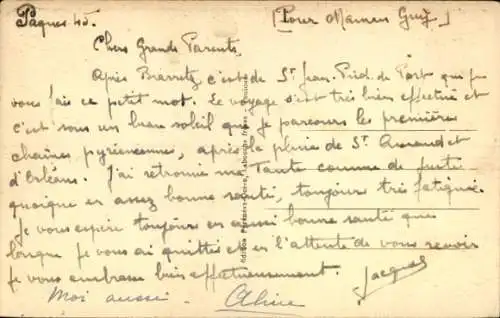 Pâques 45.
[Pour Maman Guy]
Chers Grands Parents,
Après Biarritz c'est de St Jean-Pied. de Port que je
vous fais ce petit mot. Le voyage s'est très bien effectué et
c'est sous un beau soleil que je parcours les premières
chaînes pyrénéennes, après la plaine de St. et
d'Orléans. J'ai retrouvé ma Tante comme de
quoique en assez bonne santé, toujours très fatiguée.
Je vous espère toujours en aussi bonne santé que
lorsque je vous ai quittés et en l'attente de vous revoir
je vous embrasse bien affectueusement. Jacques
Moi aussi. Aline